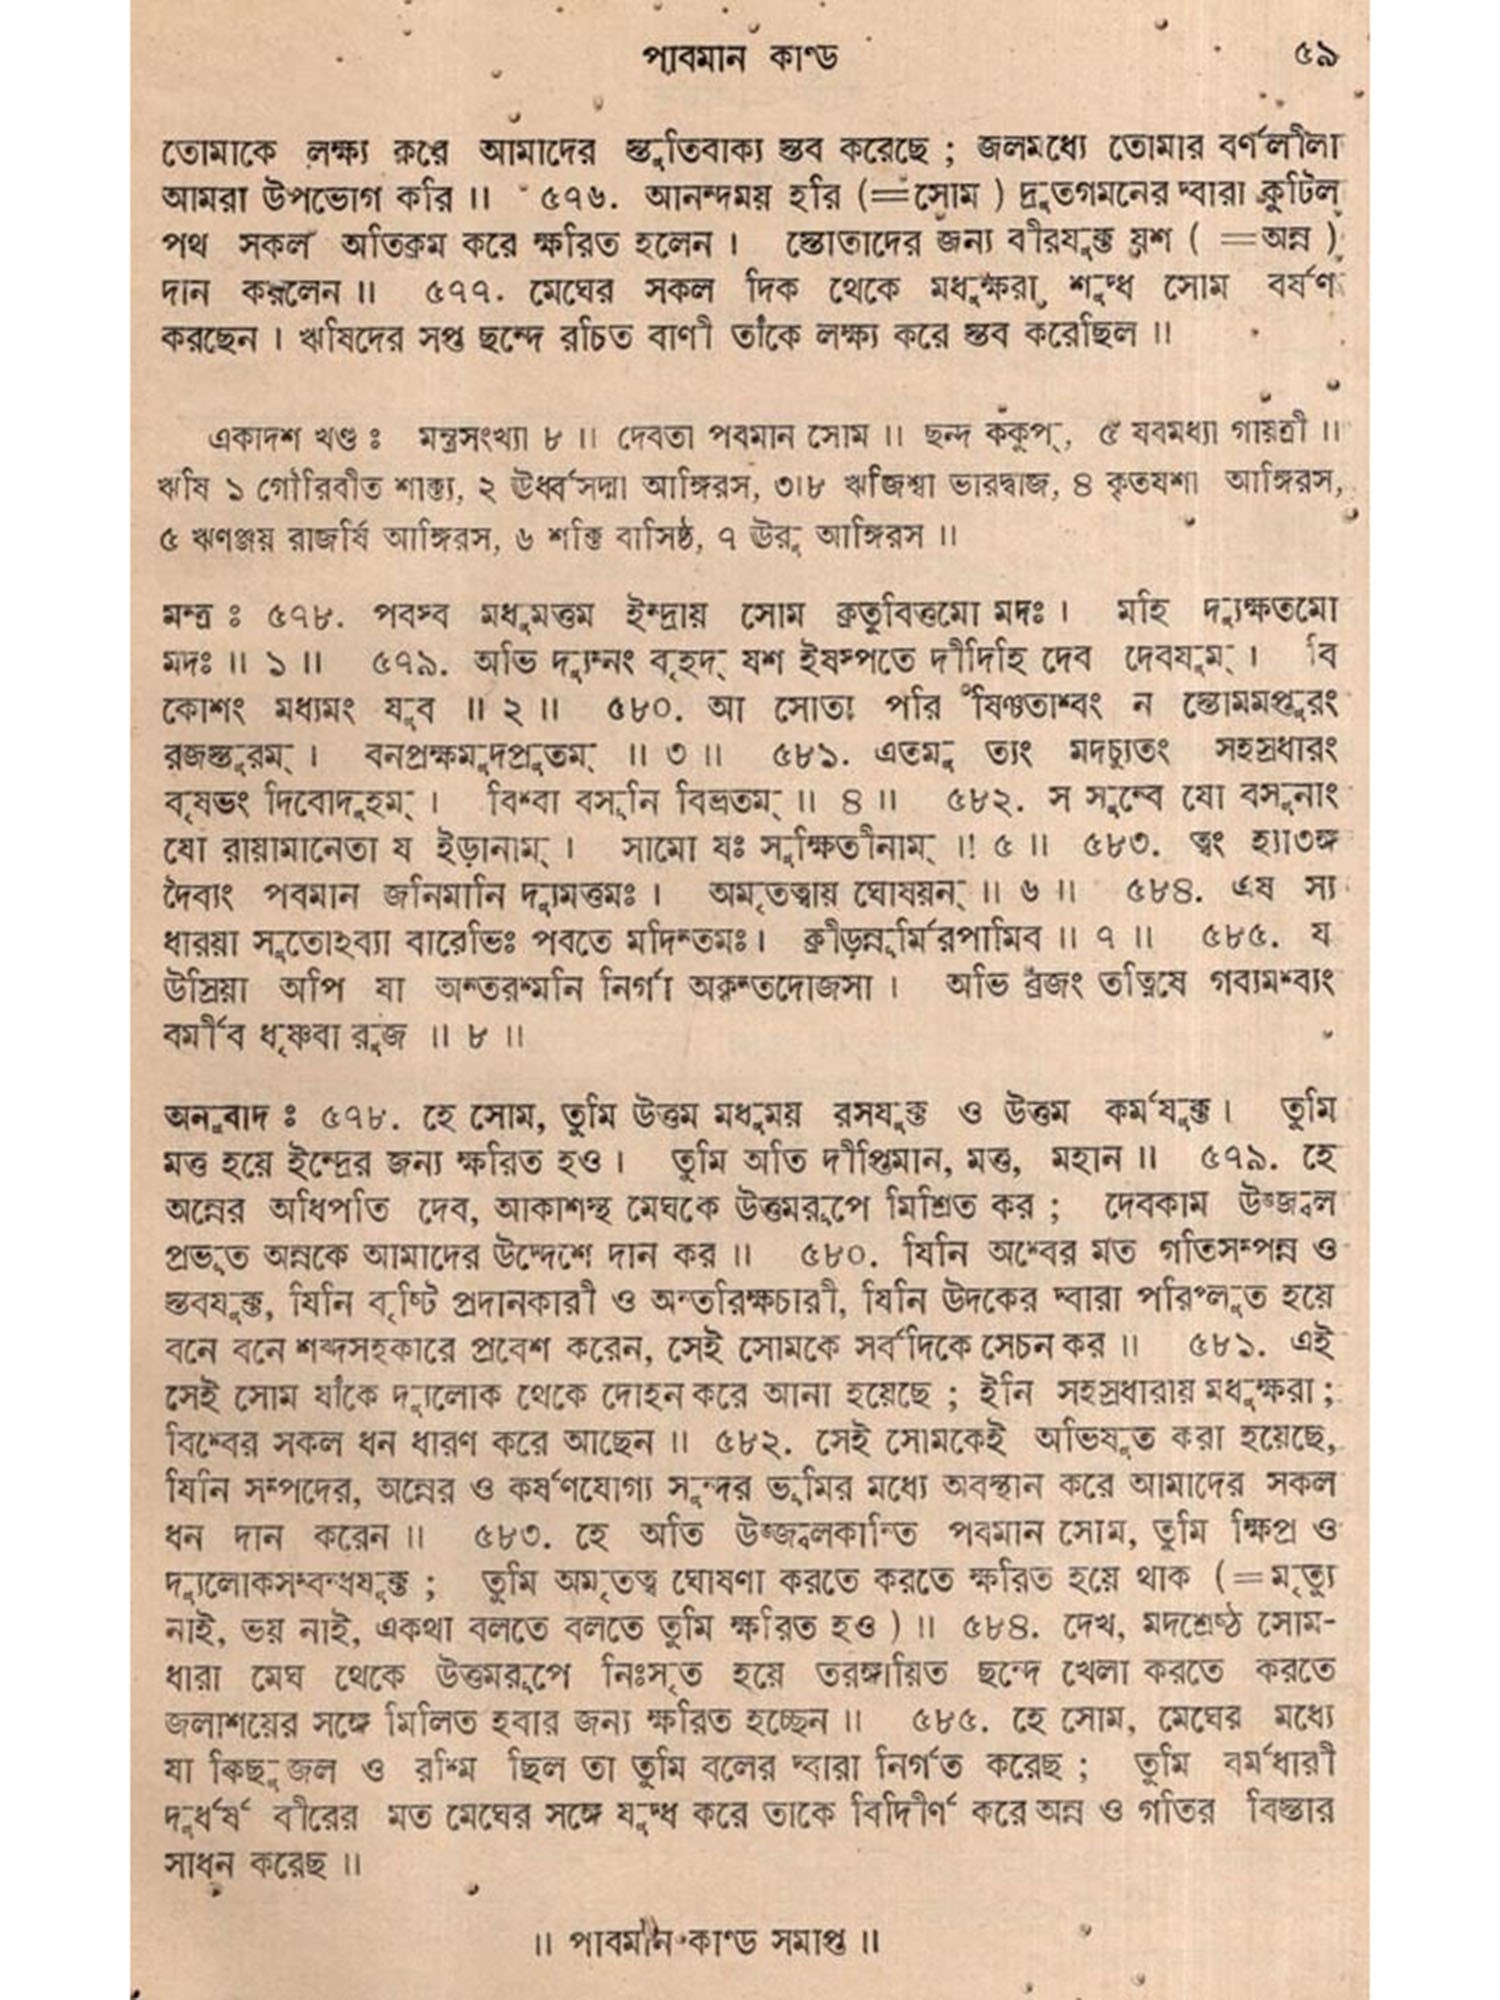 পাবমান কাণ্ড ৫৯
তোমাকে লক্ষ্য করে আমাদের স্তুতিবাক্য স্তব করেছে ; জলমধ্যে তোমার বর্ণলীলা
আমরা উপভোগ করি ॥ ৫৭৬. আনন্দময় হরি (=সোম ) দ্রুতগমনের দ্বারা কুটিল
পথ সকল অতিক্রম করে ক্ষরিত হলেন । স্তোতাদের জন্য বীরযুক্ত যশ ( =অন্ন )
দান করলেন ॥ ৫৭৭. মেঘের সকল দিক থেকে মধুক্ষরা শুদ্ধ সোম বর্ষণ
করছেন । ঋষিদের সপ্ত ছন্দে রচিত বাণী তাঁকে লক্ষ্য করে স্তব করেছিল ॥
একাদশ খণ্ড ঃ মন্ত্রসংখ্যা ৮ ॥ দেবতা পবমান সোম ॥ ছন্দ ককুপ্, ৫ যবমধ্যা গায়ত্রী ॥
ঋষি ১ গৌরিবীত শাক্ত্য, ২ ঊর্ধ্বসদ্মা আঙ্গিরস, ৩।৮ ঋজিশ্বা ভারদ্বাজ, ৪ কৃতযশা আঙ্গিরস,
৫ ঋণঞ্জয় রাজর্ষি আঙ্গিরস, ৬ শক্তি বাসিষ্ঠ, ৭ ঊরু আঙ্গিরস ॥
মন্ত্র ঃ ৫৭৮. পবস্ব মধুমত্তম ইন্দ্রায় সোম ক্রতুবিত্তমো মদঃ । মহি দ্যুক্ষতমো
মদঃ ॥ ১ ॥ ৫৭৯. অভি দ্যুম্নং বৃহদ্ যশ ইষস্পতে দীদিহি দেব দেবযুম্ । বি
কোশং মধ্যমং যুব ॥ ২ ॥ ৫৮০. আ সোতা পরি ষিঞ্চতাশ্বং ন স্তোমমপ্তুরং
রজস্তুরম্ । বনপ্রক্ষমুদপ্রুতম্ ॥ ৩ ॥ ৫৮১. এতমু ত্যং মদচ্যুতং সহস্রধারং
বৃষভং দিবোদুহম্ । বিশ্বা বসূনি বিভ্রতম্ ॥ ৪ ॥ ৫৮২. স সুন্বে যো বসূনাং
যো রায়ামানেতা য ইড়ানাম্ । সামো যঃ সুক্ষিতীনাম্ ॥ ৫ ॥ ৫৮৩. ত্বং হ্যা৩ঙ্গ
দৈব্যং পবমান জনিমানি দ্যুমত্তমঃ । অমৃতত্বায় ঘোষয়ন্ ॥ ৬ ॥ ৫৮৪. এষ স্য
ধারয়া সুতোঽব্যা বারেভিঃ পবতে মদিন্তমঃ। ক্রীড়ন্নূর্মিরপামিব ॥ ৭ ॥ ৫৮৫. য
উস্রিয়া অপি যা অন্তরশ্মনি নির্গা অকৃন্তদোজসা । অভি ব্রজং তত্নিষে গব্যমশ্ব্যং
বর্মীব ধৃষ্ণবা রুজ ॥ ৮ ॥
অনুবাদ ঃ ৫৭৮. হে সোম, তুমি উত্তম মধুময় রসযুক্ত ও উত্তম কর্মযুক্ত। তুমি
মত্ত হয়ে ইন্দ্রের জন্য ক্ষরিত হও । তুমি অতি দীপ্তিমান, মত্ত, মহান ॥ ৫৭৯. হে
অন্নের অধিপতি দেব, আকাশস্থ মেঘকে উত্তমরূপে মিশ্রিত কর ; দেবকাম উজ্জ্বল
প্রভূত অন্নকে আমাদের উদ্দেশে দান কর ॥ ৫৮০. যিনি অশ্বের মত গতিসম্পন্ন ও
স্তবযুক্ত, যিনি বৃষ্টি প্রদানকারী ও অন্তরিক্ষচারী, যিনি উদকের দ্বারা পরিপ্লুত হয়ে
বনে বনে শব্দসহকারে প্রবেশ করেন, সেই সোমকে সর্বদিকে সেচন কর ॥ ৫৮১. এই
সেই সোম যাঁকে দ্যুলোক থেকে দোহন করে আনা হয়েছে ; ইনি সহস্রধারায় মধুক্ষরা ;
বিশ্বের সকল ধন ধারণ করে আছেন ॥ ৫৮২. সেই সোমকেই অভিষুত করা হয়েছে,
যিনি সম্পদের, অন্নের ও কর্ষণযোগ্য সুন্দর ভূমির মধ্যে অবস্থান করে আমাদের সকল
ধন দান করেন ॥ ৫৮৩. হে অতি উজ্জ্বলকান্তি পবমান সোম, তুমি ক্ষিপ্র ও
দ্যুলোকসম্বন্ধযুক্ত ; তুমি অমৃতত্ব ঘোষণা করতে করতে ক্ষরিত হয়ে থাক (=মৃত্যু
নাই, ভয় নাই, একথা বলতে বলতে তুমি ক্ষরিত হও ) ॥ ৫৮৪. দেখ, মদশ্রেষ্ঠ সোম-
ধারা মেঘ থেকে উত্তমরূপে নিঃসৃত হয়ে তরঙ্গায়িত ছন্দে খেলা করতে করতে
জলাশয়ের সঙ্গে মিলিত হবার জন্য ক্ষরিত হচ্ছেন ॥ ৫৮৫. হে সোম, মেঘের মধ্যে
যা কিছু জল ও রশ্মি ছিল তা তুমি বলের দ্বারা নির্গত করেছ ; তুমি বর্মধারী
দুর্ধর্ষ বীরের মত মেঘের সঙ্গে যুদ্ধ করে তাকে বিদীর্ণ করে অন্ন ও গতির বিস্তার
সাধন করেছ ॥
॥ পাবমান কাণ্ড সমাপ্ত ॥